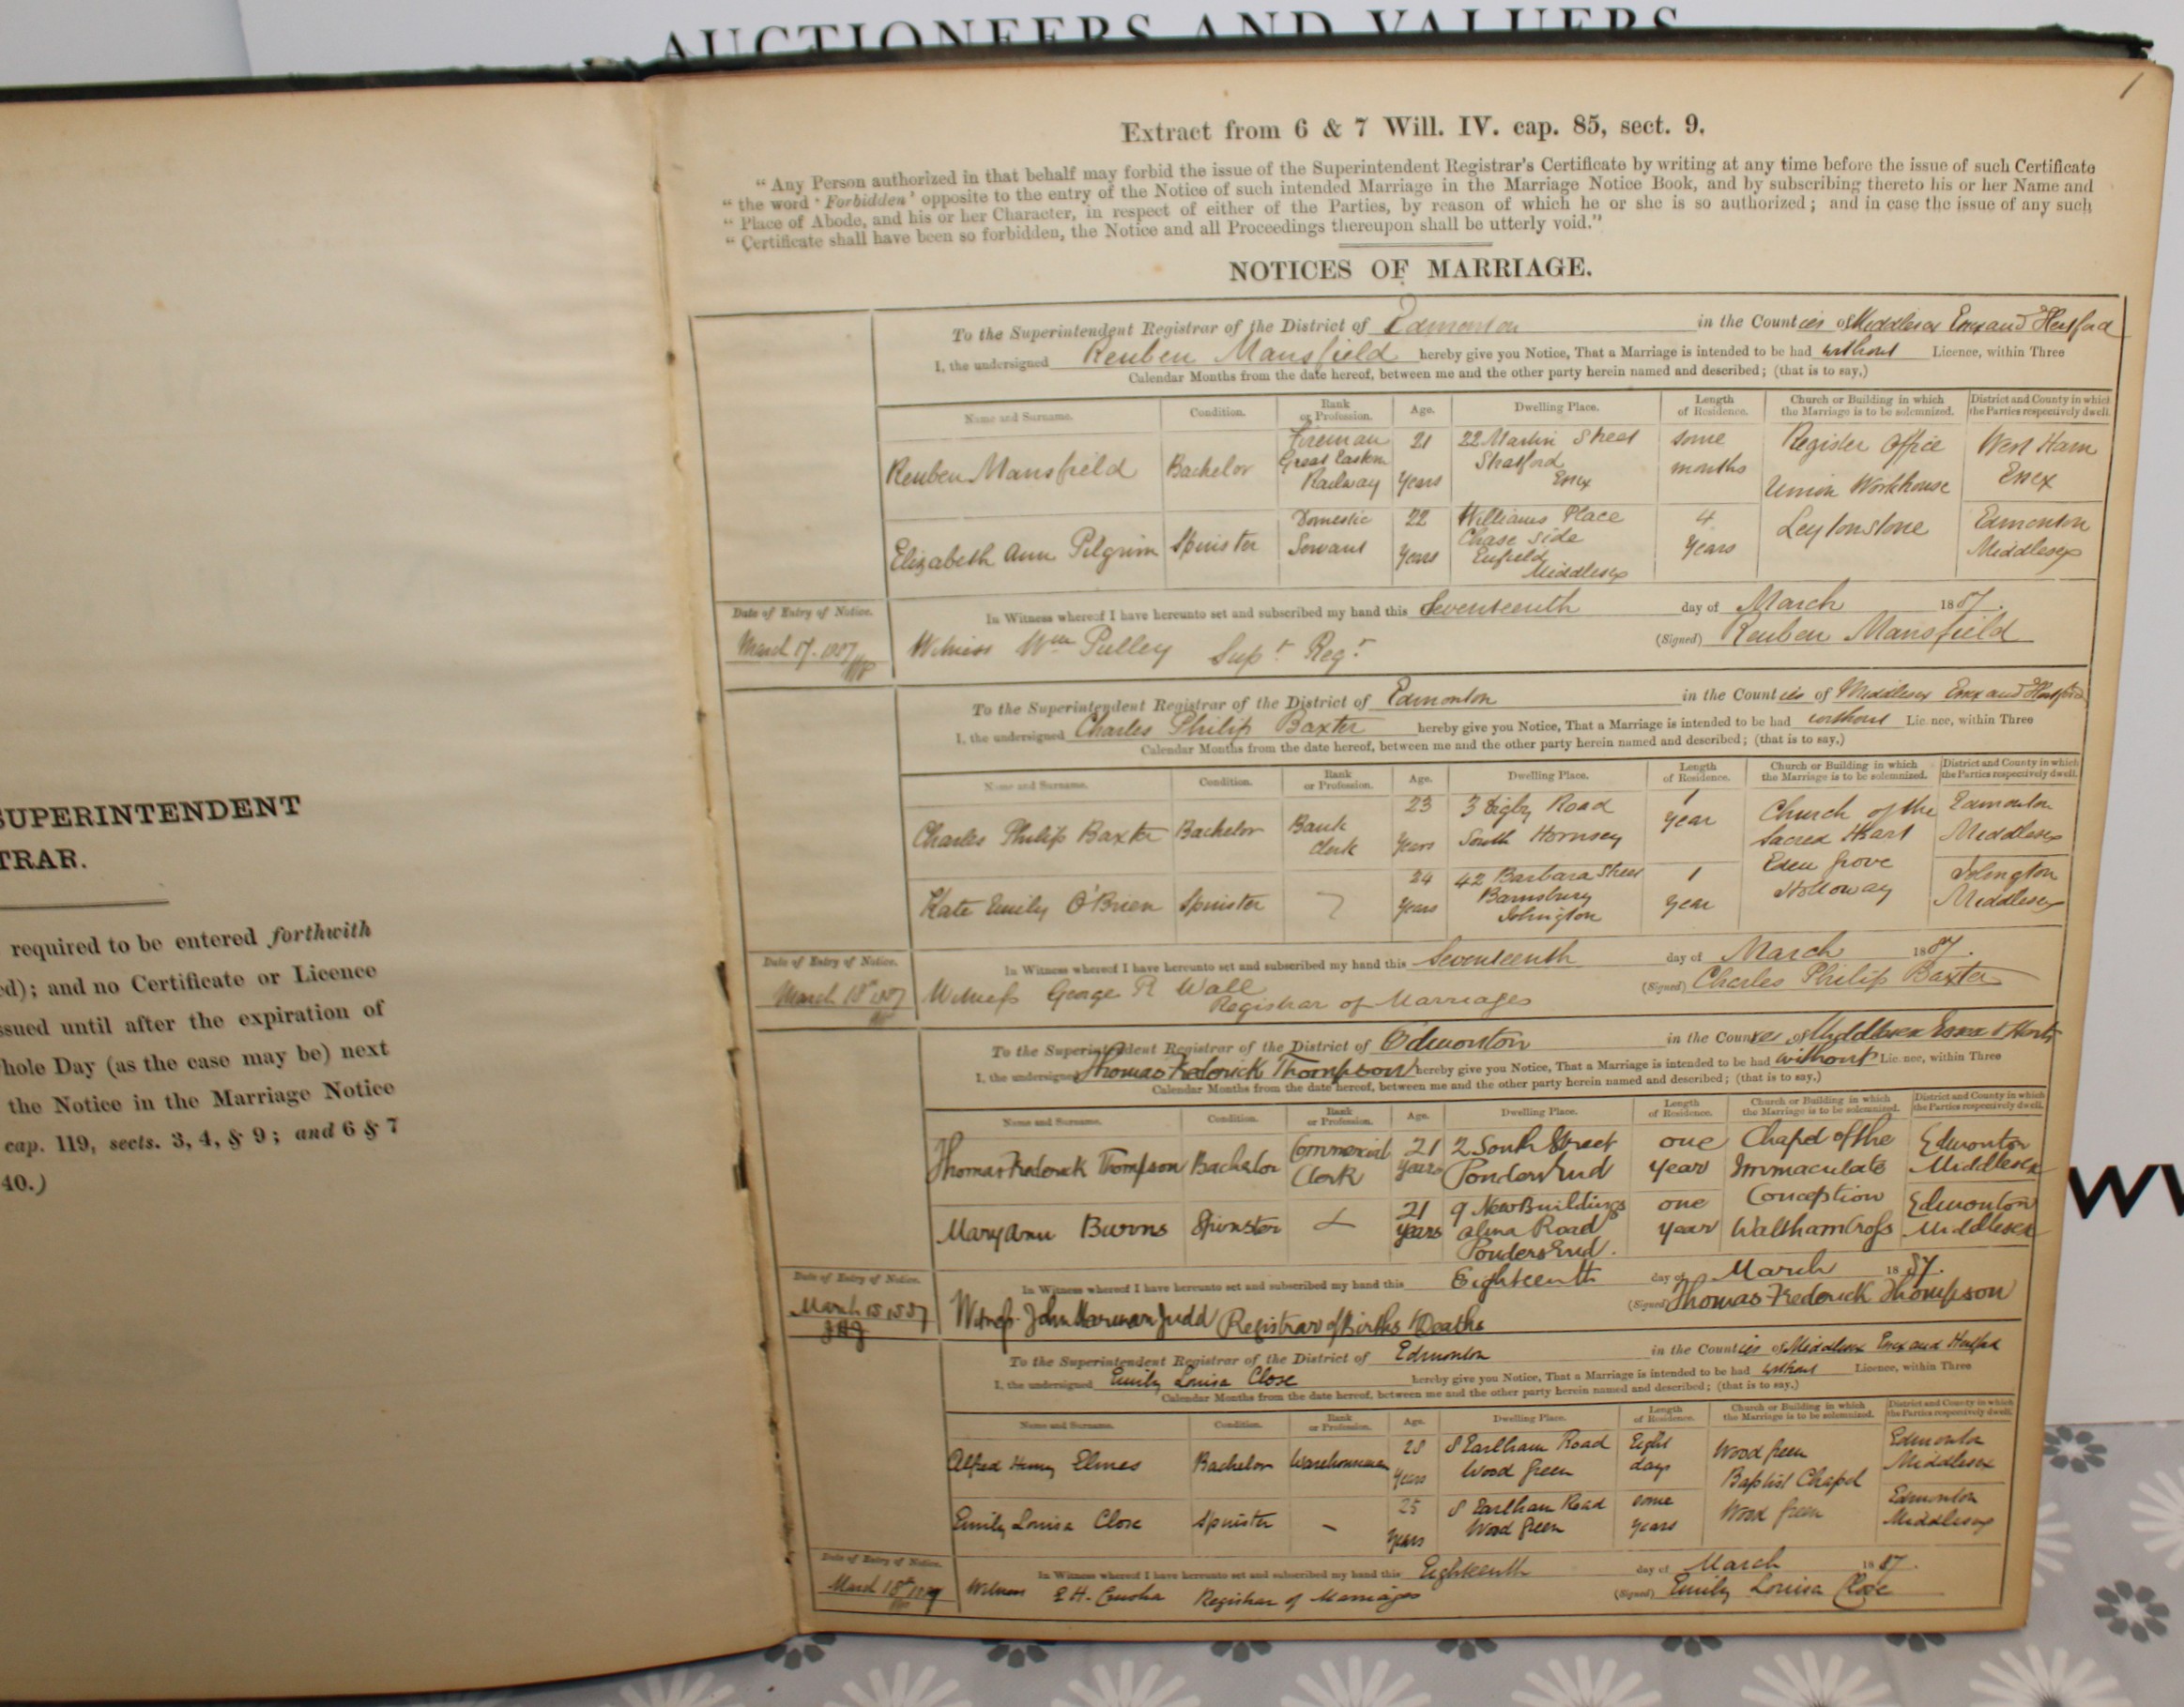 AUCTIONEERS AND VALUERS
1
SUPERINTENDENT
TRAR.
required to be entered forthwith
ed); and no Certificate or Licence
ssued until after the expiration of
hole Day (as the case may be) next
the Notice in the Marriage Notice
cap. 119, sects. 3, 4, § 9; and 6 § 7
40.)
Extract from 6 & 7 Will. IV. cap. 85, sect. 9.
"Any Person authorized in that behalf may forbid the issue of the Superintendent Registrar's Certificate by writing at any time before the issue of such Certificate
"the word 'Forbidden' opposite to the entry of the Notice of such intended Marriage in the Marriage Notice Book, and by subscribing thereto his or her Name and
"Place of Abode, and his or her Character, in respect of either of the Parties, by reason of which he or she is so authorized; and in case the issue of any such
"Certificate shall have been so forbidden, the Notice and all Proceedings thereupon shall be utterly void."
NOTICES OF MARRIAGE.
To the Superintendent Registrar of the District of Edmonton in the Counties of Middlesex Essex and Hertford
I, the undersigned Reuben Mansfield hereby give you Notice, That a Marriage is intended to be had without Licence, within Three
Calendar Months from the date hereof, between me and the other party herein named and described; (that is to say,)
Name and Surname. Condition. Rank or Profession. Age. Dwelling Place. Length of Residence. Church or Building in which the Marriage is to be solemnized. District and County in which the Parties respectively dwell.
Reuben Mansfield Bachelor Fireman Great Eastern Railway 21 Years 22 Martin Street Stratford Essex some months Register Office Union Workhouse West Ham Essex
Elizabeth Ann Pilgrim Spinster Domestic Servant 22 Years Williams Place Chase Side Enfield Middlesex 4 Years Leytonstone Edmonton Middlesex
Date of Entry of Notice. In Witness whereof I have hereunto set and subscribed my hand this Seventeenth day of March 1887.
March 17. 1887 Witness Wm Pulley Supt Regr (Signed) Reuben Mansfield
To the Superintendent Registrar of the District of Edmonton in the Counties of Middlesex Essex and Hertford
I, the undersigned Charles Philip Baxter hereby give you Notice, That a Marriage is intended to be had without Licence, within Three
Calendar Months from the date hereof, between me and the other party herein named and described; (that is to say,)
Name and Surname. Condition. Rank or Profession. Age. Dwelling Place. Length of Residence. Church or Building in which the Marriage is to be solemnized. District and County in which the Parties respectively dwell.
Charles Philip Baxter Bachelor Bank Clerk 23 Years 3 Digby Road South Hornsey 1 year Church of the Sacred Heart Edmonton Middlesex
Kate Emily O'Brien Spinster 24 Years 42 Barbara Street Barnsbury Islington 1 year Eden Grove Holloway Islington Middlesex
Date of Entry of Notice. In Witness whereof I have hereunto set and subscribed my hand this Seventeenth day of March 1887.
March 18th 1887 Witness George R Wall Registrar of Marriages (Signed) Charles Philip Baxter
To the Superintendent Registrar of the District of Edmonton in the Counties of Middlesex Essex & Herts
I, the undersigned Thomas Frederick Thompson hereby give you Notice, That a Marriage is intended to be had without Licence, within Three
Calendar Months from the date hereof, between me and the other party herein named and described; (that is to say,)
Name and Surname. Condition. Rank or Profession. Age. Dwelling Place. Length of Residence. Church or Building in which the Marriage is to be solemnized. District and County in which the Parties respectively dwell.
Thomas Frederick Thompson Bachelor Commercial Clerk 21 years 2 South Street Ponders End one year Chapel of the Immaculate Edmonton Middlesex
Mary Ann Burns Spinster 21 years 9 New Buildings Alma Road Ponders End. one year Conception Waltham Cross Edmonton Middlesex
Date of Entry of Notice. In Witness whereof I have hereunto set and subscribed my hand this Eighteenth day of March 1887.
March 18 1887 Witness John Judd Registrar of Births & Deaths (Signed) Thomas Frederick Thompson
To the Superintendent Registrar of the District of Edmonton in the Counties of Middlesex Essex and Hertford
I, the undersigned Emily Louisa Close hereby give you Notice, That a Marriage is intended to be had without Licence, within Three
Calendar Months from the date hereof, between me and the other party herein named and described; (that is to say,)
Name and Surname. Condition. Rank or Profession. Age. Dwelling Place. Length of Residence. Church or Building in which the Marriage is to be solemnized. District and County in which the Parties respectively dwell.
Alfred Henry Elmes Bachelor Warehouseman 28 Years 8 Earlham Road Wood Green Eight days Wood Green Baptist Chapel Edmonton Middlesex
Emily Louisa Close Spinster - 25 Years 8 Earlham Road Wood Green some years Wood Green Edmonton Middlesex
Date of Entry of Notice. In Witness whereof I have hereunto set and subscribed my hand this Eighteenth day of March 1887.
March 18th 1887 Witness E H. Registrar of Marriages (Signed) Emily Louisa Close